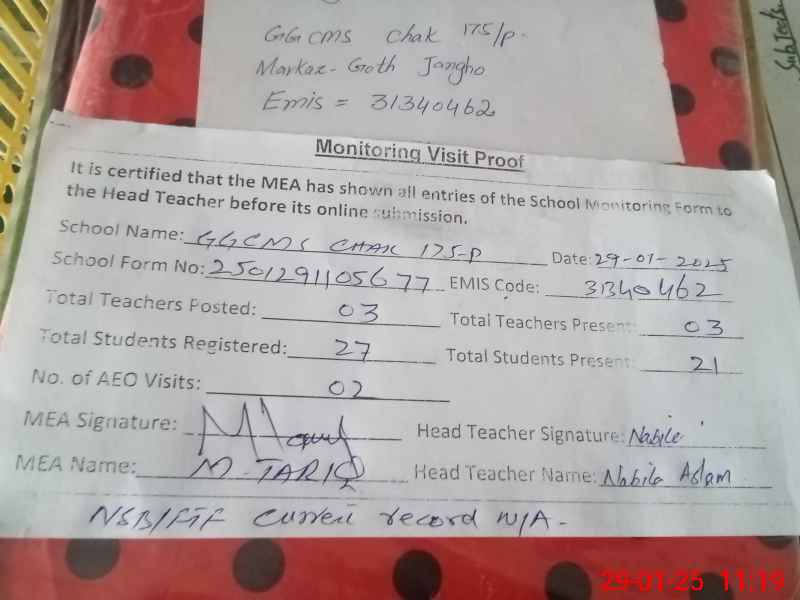 GGCMS Chak 175/P.
Markaz - Goth Jangho
Emis = 31340462
Monitoring Visit Proof
It is certified that the MEA has shown all entries of the School Monitoring Form to
the Head Teacher before its online submission.
School Name: GGCMS CHAK 175-P Date: 29-01-2025
School Form No: 2501291105677 EMIS Code: 31340462
Total Teachers Posted: 03 Total Teachers Present: 03
Total Students Registered: 27 Total Students Present: 21
No. of AEO Visits: 02
MEA Signature: Head Teacher Signature: Nabila
MEA Name: M. TARIQ Head Teacher Name: Nabila Aslam
NSB/FTF current record N/A-
29-01-25 11:19